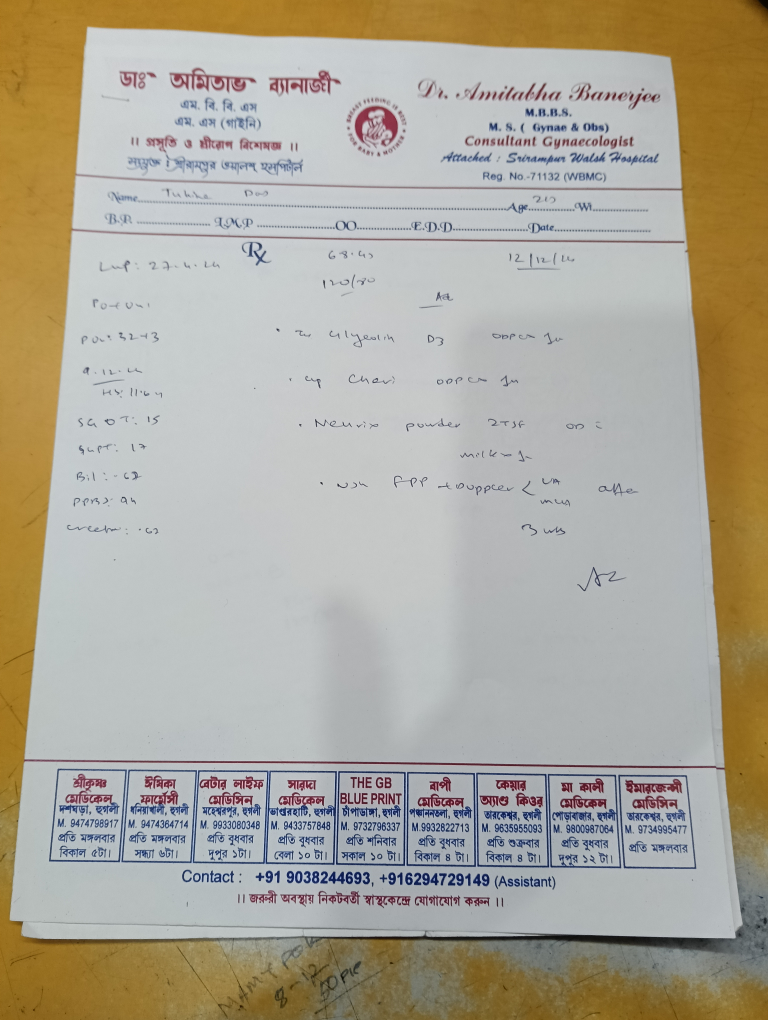 ডাঃ অমিতাভ ব্যানার্জী
এম. বি. বি. এস
এম. এস (গাইনি)
।। প্রসূতি ও স্ত্রীরোগ বিশেষজ্ঞ ।।
সংযুক্ত : শ্রীরামপুর ওয়ালশ হসপিটাল
BREAST FEEDING IS BEST FOR BABY & MOTHER
Dr. Amitabha Banerjee
M.B.B.S.
M. S. ( Gynae & Obs)
Consultant Gynaecologist
Attached : Srirampur Walsh Hospital
Reg. No.-71132 (WBMC)
Name Age Wt
B.P. L.M.P OO E.D.D Date
Rx
LMP: 27.4.24
12/12/24
120/80
POG: 32+3
D3
9.12.24
Hb: 11.6
SGOT: 15
Neurix powder 2TSF OD
SGPT: 17
milk
Bil: .62
+ Doppler < UA after
MCA
3 wks
শ্রীকৃষ্ণ মেডিকেল
দশঘড়া, হুগলী
M. 9474798917
প্রতি মঙ্গলবার
বিকাল ৫টা।
ঈসিকা ফার্মেসী
ধনিয়াখালী, হুগলী
M. 9474364714
প্রতি মঙ্গলবার
সন্ধ্যা ৬টা।
বেটার লাইফ মেডিসিন
মহেশ্বরপুর, হুগলী
M. 9933080348
প্রতি বুধবার
দুপুর ১টা।
সারদা মেডিকেল
ভাণ্ডারহাটি, হুগলী
M. 9433757848
প্রতি বুধবার
বেলা ১০ টা।
THE GB
BLUE PRINT
চাঁপাডাঙ্গা, হুগলী
M. 9732796337
প্রতি শনিবার
সকাল ১০ টা।
বাপী মেডিকেল
পঞ্চাননতলা, হুগলী
M.9932822713
প্রতি বুধবার
বিকাল ৪ টা।
কেয়ার অ্যাণ্ড কিওর
তারকেশ্বর, হুগলী
M. 9635955093
প্রতি শুক্রবার
বিকাল ৪ টা।
মা কালী মেডিকেল
পোড়াবাজার, হুগলী
M. 9800987064
প্রতি বুধবার
দুপুর ১২ টা।
ইমারজেন্সী মেডিসিন
তারকেশ্বর, হুগলী
M. 9734995477
প্রতি মঙ্গলবার
Contact : +91 9038244693, +916294729149 (Assistant)
।। জরুরী অবস্থায় নিকটবর্তী স্বাস্থ্যকেন্দ্রে যোগাযোগ করুন ।।
8-12